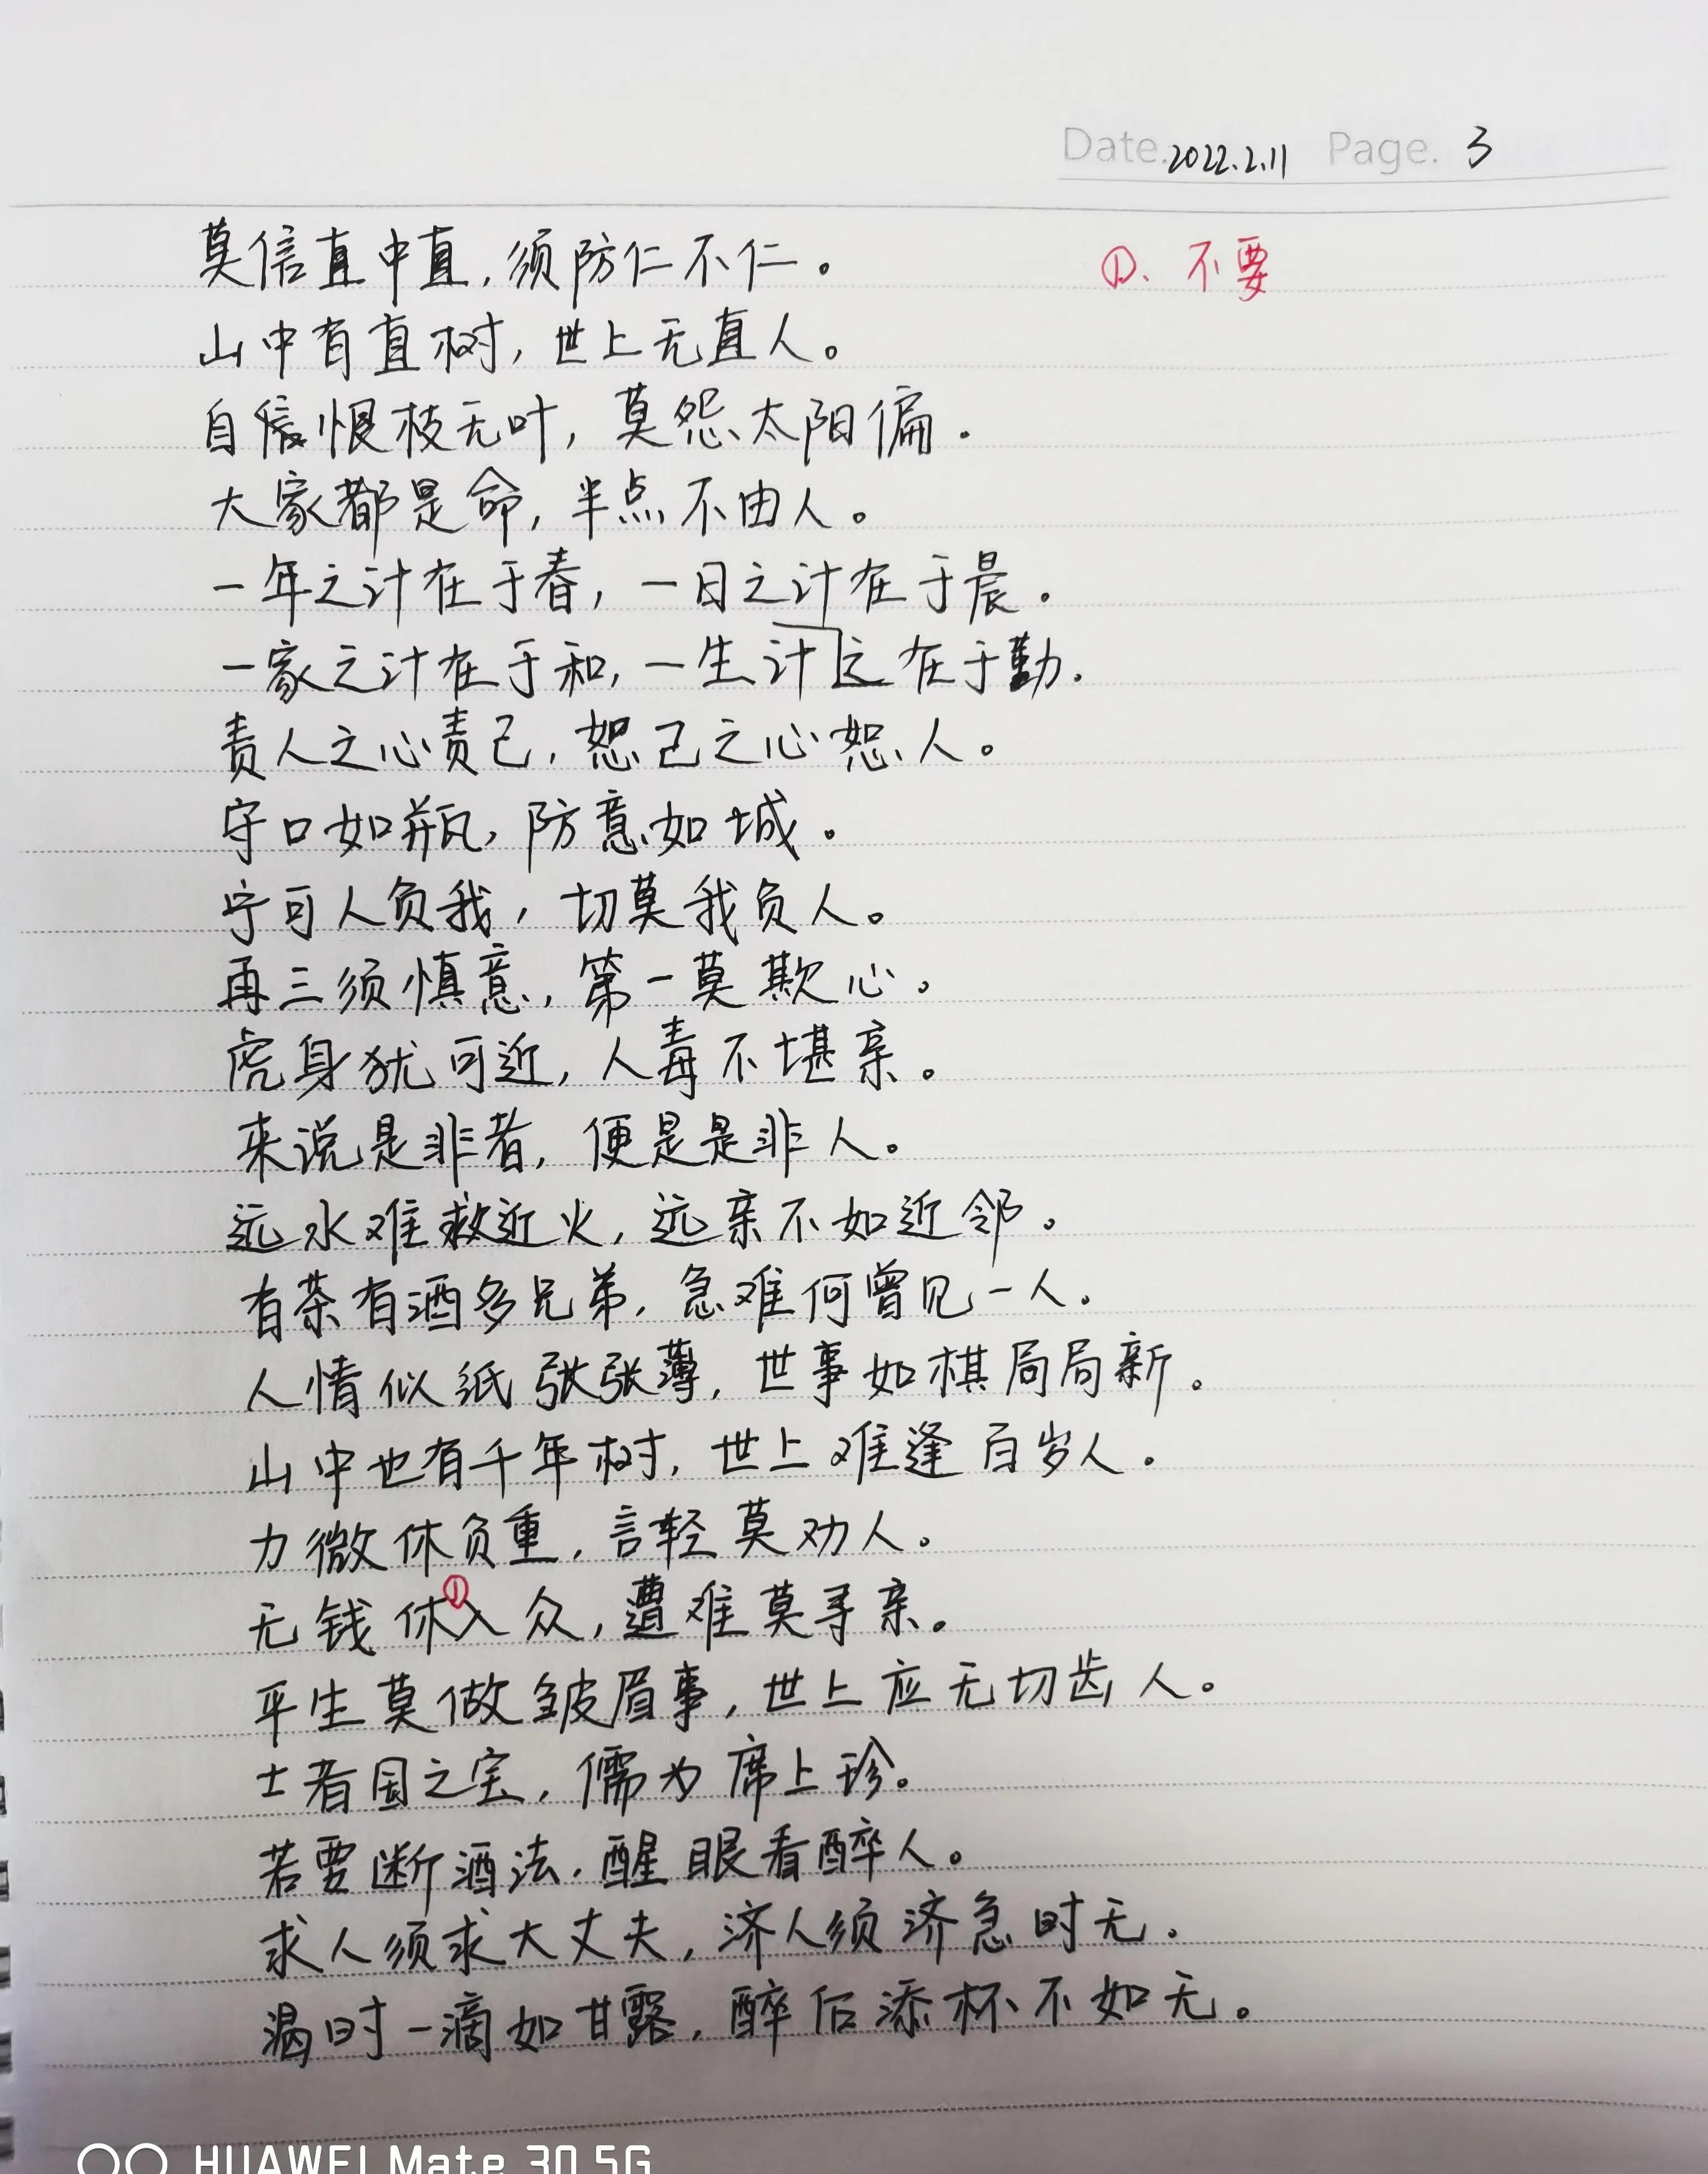 Date. 2022.2.11 Page. 3
莫信直中直，须防仁不仁。 ①、不要
山中有直树，世上无直人。
自恨枝无叶，莫怨太阳偏.
大家都是命，半点不由人。
一年之计在于春，一日之计在于晨.
一家之计在于和，一生计之在于勤.
责人之心责己，恕己之心恕人。
守口如瓶，防意如城.
宁可人负我，切莫我负人。
再三须慎意，第一莫欺心。
虎身犹可近，人毒不堪亲。
来说是非者，便是是非人。
远水难救近火，远亲不如近邻。
有茶有酒多兄弟，急难何曾见一人.
人情似纸张张薄，世事如棋局局新。
山中也有千年树，世上难逢百岁人.
力微休负重，言轻莫劝人。
无钱休①入众，遭难莫寻亲。
平生莫做皱眉事，世上应无切齿人。
士者国之宝，儒为席上珍。
若要断酒法.醒眼看醉人。
求人须求大丈夫，济人须济急时无.
渴时一滴如甘露，醉后添杯不如无。
HUAWEI Mate 30 5G